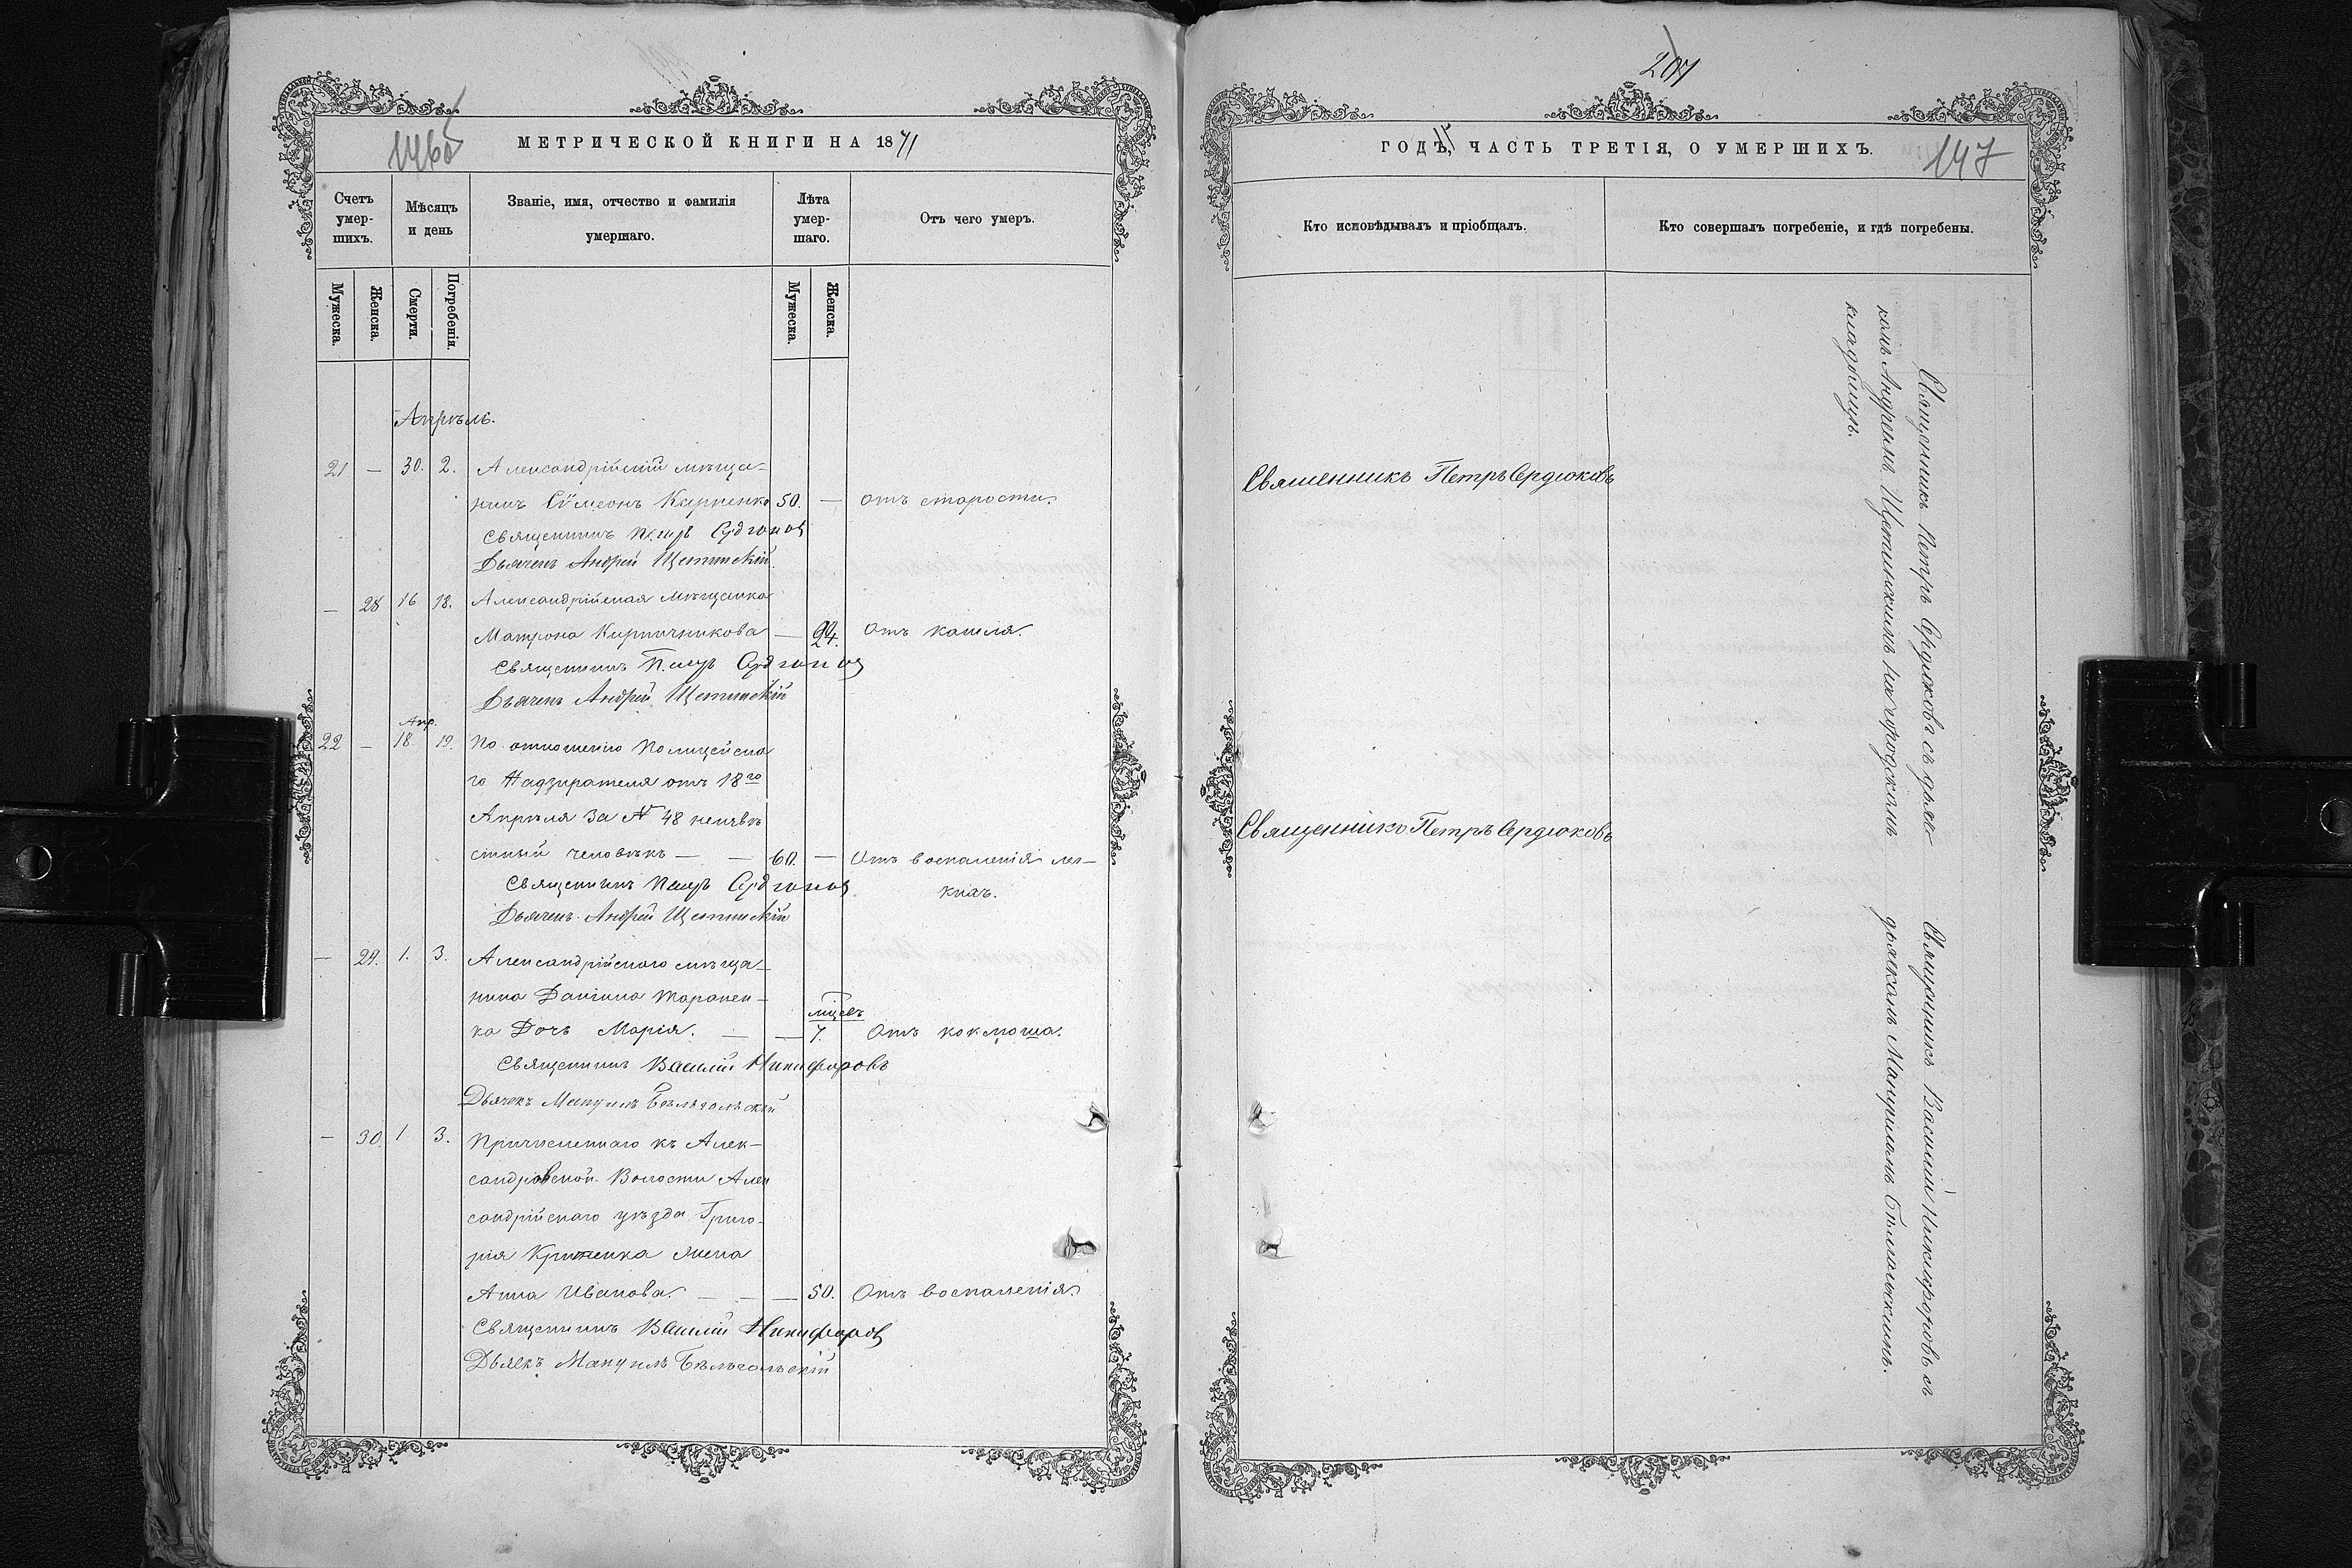 МЕТРИЧЕСКОЙ КНИГИ НА 1871
Счетъ умер-шихъ.
Мѣсяцъ и день
Званіе, имя, отчество и фамилія умершаго.
Лѣта умер-шаго.
Отъ чего умеръ.
Мужеска. Женска. Смерти. Погребенія. Мужеска. Женска.
Апрѣль.
21 — 30. 2. Александрійскій мѣща-
нинъ Сѵмеонъ Карпенко 50. — отъ старости.
Священникъ Петръ Сердюковъ
Дьячекъ Андрей Щетинскій.
— 28 16 18. Александрійская мѣщанка
Матрона Кирпичникова — 94. отъ кашля.
Священникъ Петръ Сердюковъ
Дьячекъ Андрей Щетинскій
Апр.
22 — 18. 19. По отношенію Полицейска
го Надзирателя отъ 18го
Апрѣля за № 48 неизвѣ
стный человѣкъ — — 60. — Отъ воспаленія лег-
кихъ.
Священникъ Петръ Сердюковъ
Дьячекъ Андрей Щетинскій
— 29. 1. 3. Александрійскаго мѣща-
нина Даніила Таранен-
мѣсяцъ
ка Дочь Марія. — — 7. Отъ коклюша.
Священникъ Василій Никифоровъ
Дьячекъ Мануилъ
— 30. 1 3. Причисленнаго къ Алек-
сандровской Волости Алек
сандрійскаго уѣзда Григо-
рія жена
Анна Иванова. — — — 50. Отъ воспаленія.
Священникъ Василій Никифоровъ
Дьячекъ Мануилъ
207
ГОДЪ, ЧАСТЬ ТРЕТІЯ, О УМЕРШИХЪ. 147
Кто исповѣдывалъ и пріобщалъ.
Кто совершалъ погребеніе, и гдѣ погребены.
Священникъ Петръ Сердюковъ
Священникъ Петръ Сердюковъ
Священникъ Петръ Сердюковъ съ дьяч-
комъ Андреемъ Щетинскимъ на городскомъ
кладбищѣ.
Священникъ Василій Никифоровъ съ
дьячкомъ Мануиломъ